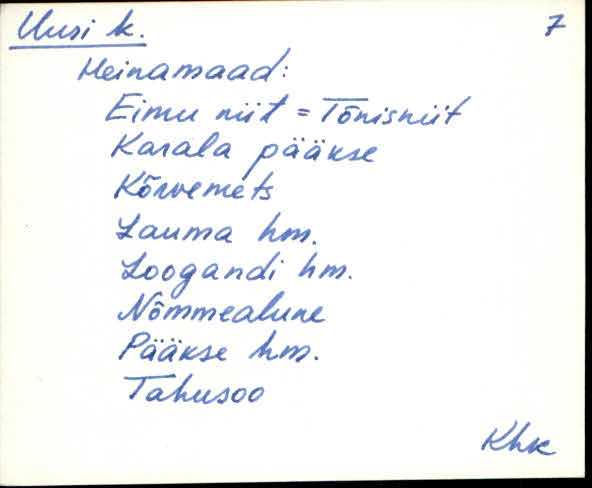 Uusi k. 7
Heinamaad:
Eimu niit = Tõnisniit
Karala pääkse
Kõrvemets
Lauma hm.
Loogandi hm.
Nõmmealune
Pääkse hm.
Tahusoo
Khk